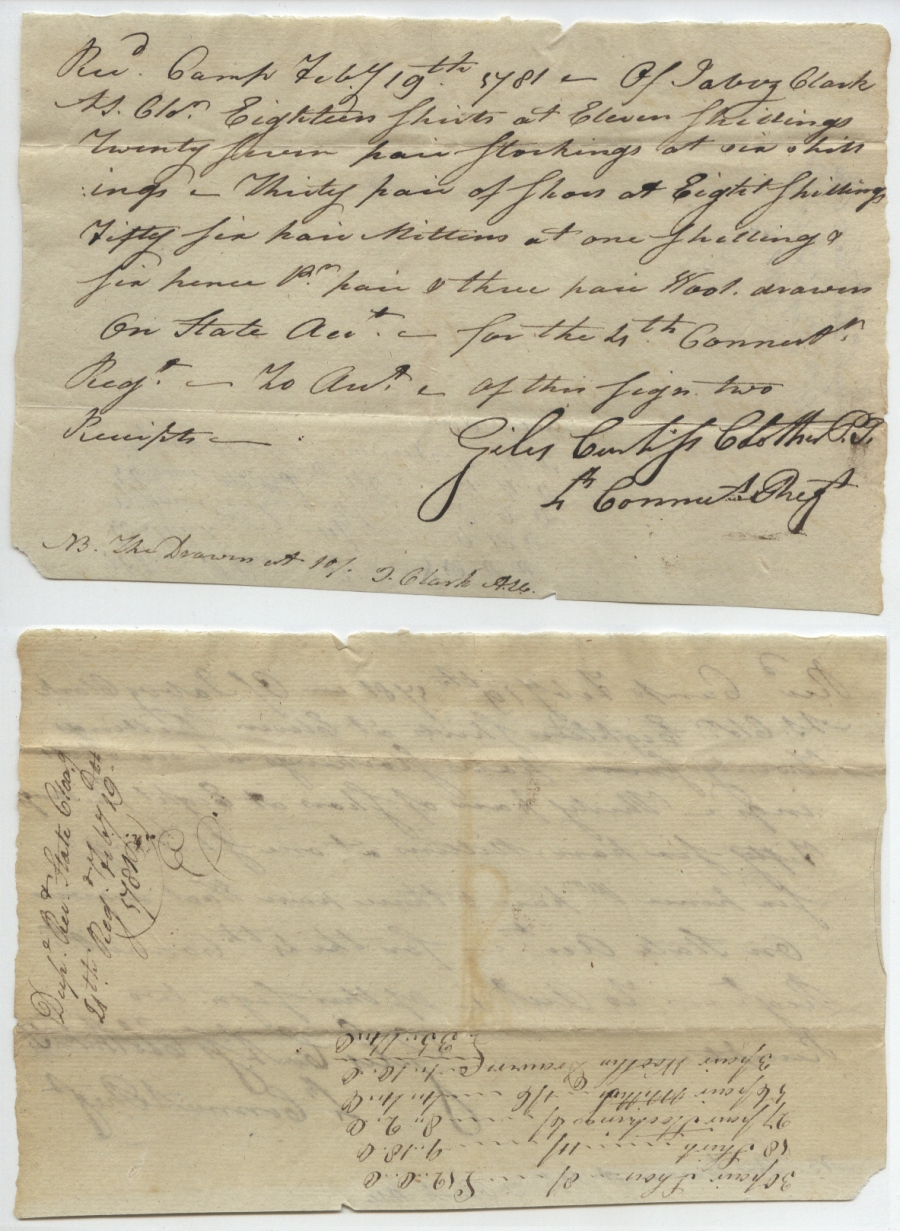 Recd. Camp Feby 19th. 1781 – Of Jabez Clark
As. Clor. Eighteen Shirts at Eleven Shillings
Twenty Seven pair Stockings at six shill
ings – Thirty pair of Shoes at Eight Shillings
Fifty Six pair Mittens at one Shilling &
Six pence Pr. pair & three pair Wool. drawers
On State Acct. – for the 4th. Connectt.
Regt. – To Acct. – of this Sign two
Receipts –
Giles Curtiss Clothr P.T.
4th Connect. Regt
NB. The Drawers at 10/. J. Clark
Dupe. Rt.
Rec. State Cloag
4th. Regt. Feby 19
1781
30 pair Shoes 8/ – £12.0.0
18 Shirts – 11/ – 9.18.0
27 pair Stockings 6/ – 8..2.0
56 pair Mittens 1/6 – 4..4..0
3 pair Woollen Drawers 1..10.0
£35..14..0